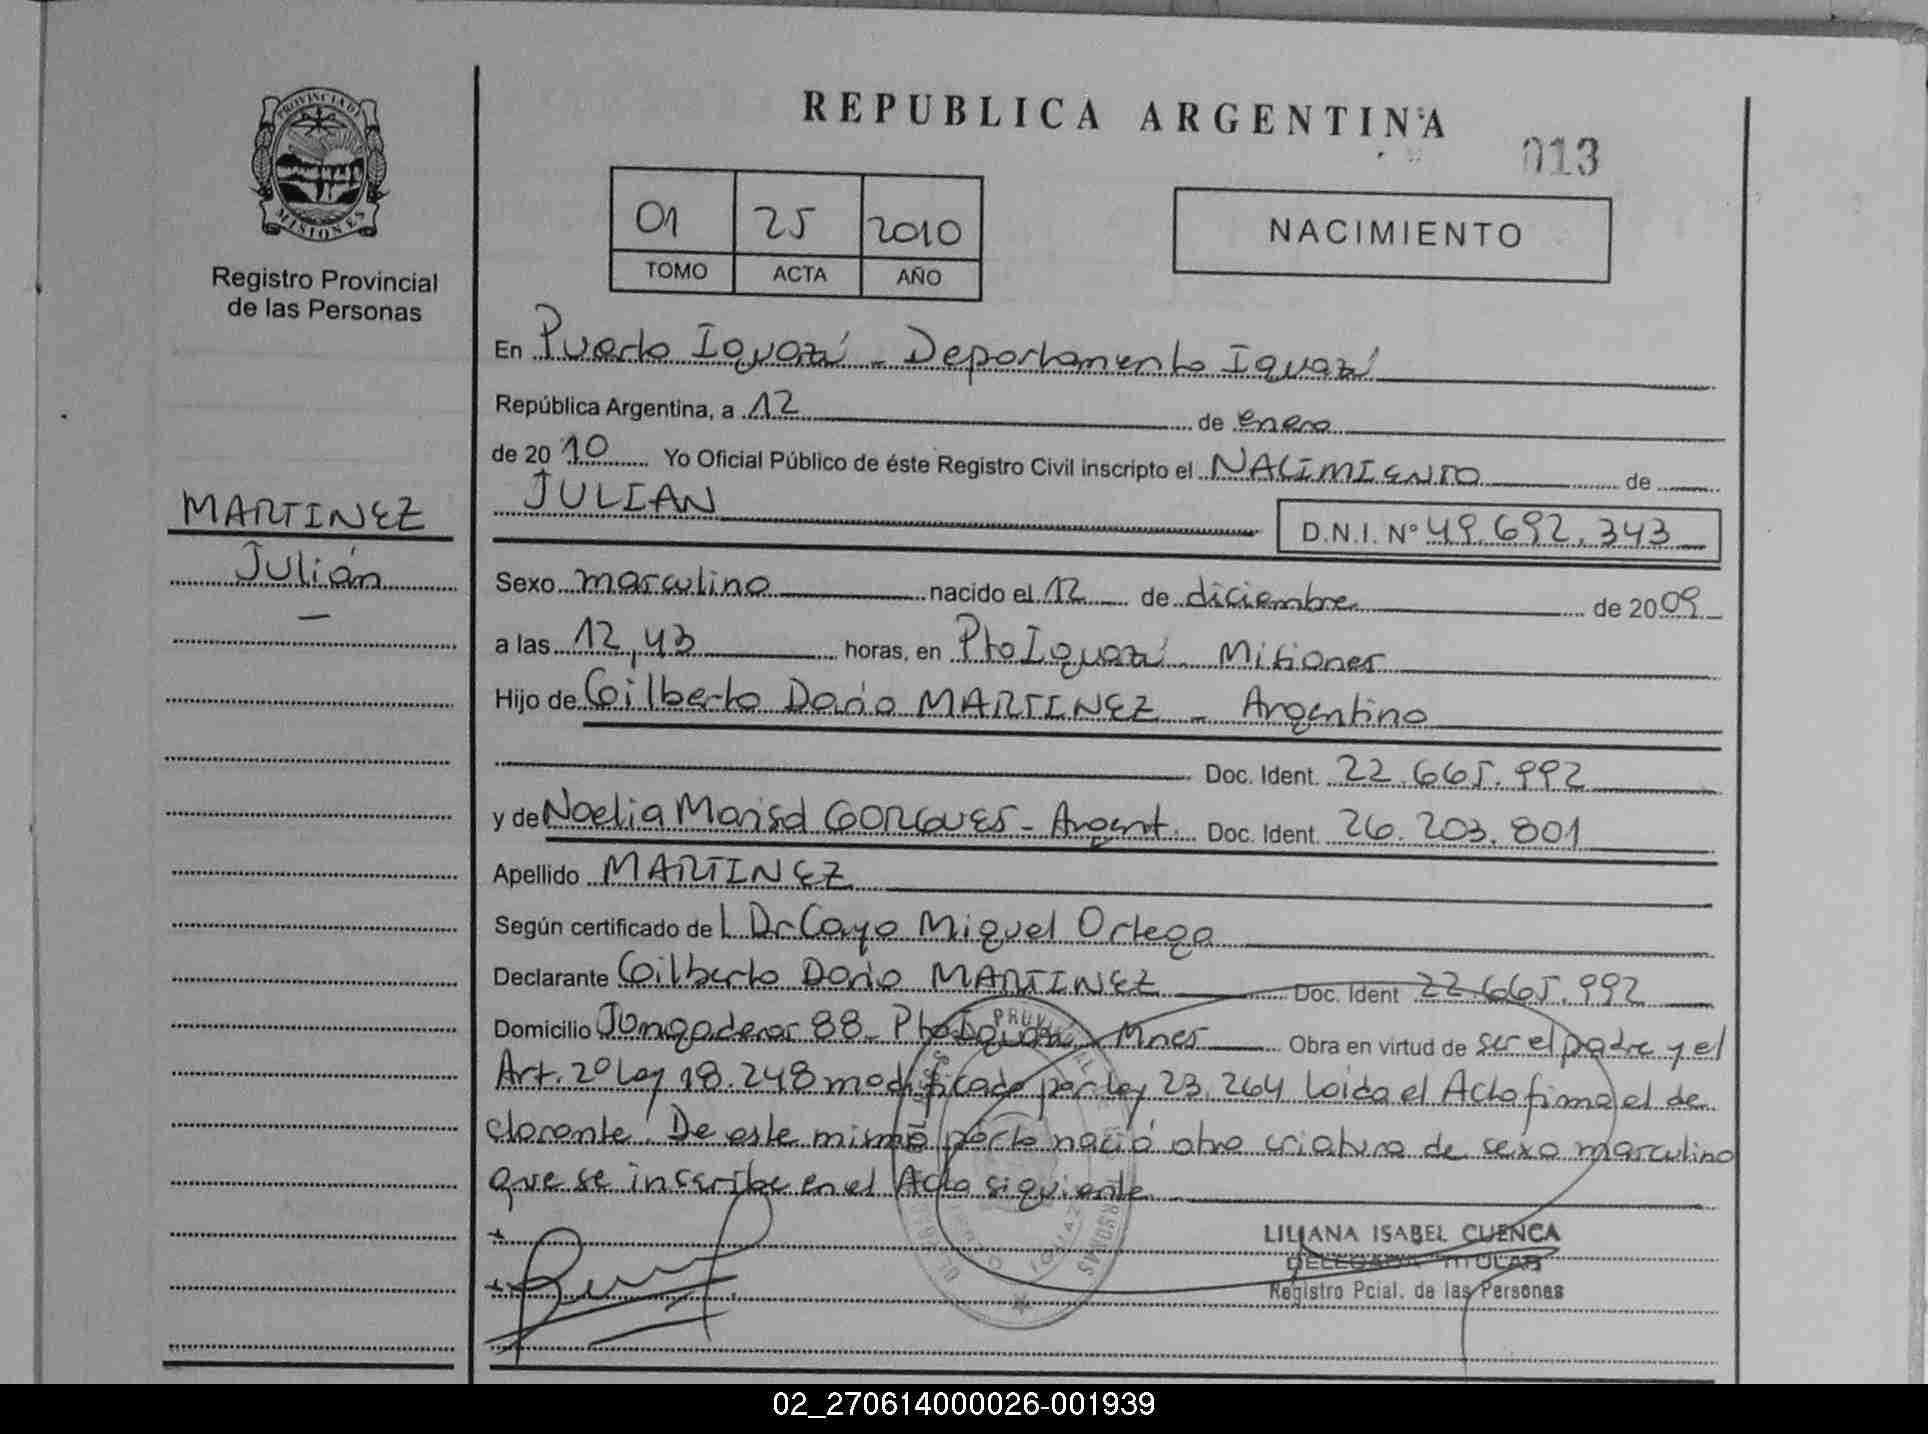 REPUBLICA ARGENTINA
013
PROVINCIA DE
MISIONES
Registro Provincial
de las Personas
01 25 2010
TOMO ACTA AÑO
NACIMIENTO
En Puerto Iguazú - Departamento Iguazú
República Argentina, a 12 de enero
de 2010 Yo Oficial Público de éste Registro Civil inscripto el NACIMIENTO de
JULIAN
D.N.I. N° 49.692.343
MARTINEZ
Julián
-
Sexo masculino nacido el 12 de diciembre de 2009
a las 12,43 horas, en Pto Iguazú - Misiones
Hijo de Gilberto Dario MARTINEZ - Argentino
Doc. Ident. 22.665.992
y de Noelia Marisel - Argent. Doc. Ident. 26.203.801
Apellido MARTINEZ
Según certificado del Dr Cayo Miguel Ortega
Declarante Gilberto Dario MARTINEZ Doc. Ident 22.665.992
Domicilio 88 - Pto Iguazú - Mnes Obra en virtud de ser el padre y el
Art. 2º Ley 18.248 modificado por Ley 23.264 Leída el Acta firma el de
clarante. De este mismo parto nació otra criatura de sexo masculino
que se inscribe en el Acta siguiente
LILIANA ISABEL CUENCA
DELEGADA TITULAR
Registro Pcial. de las Personas
02_270614000026-001939